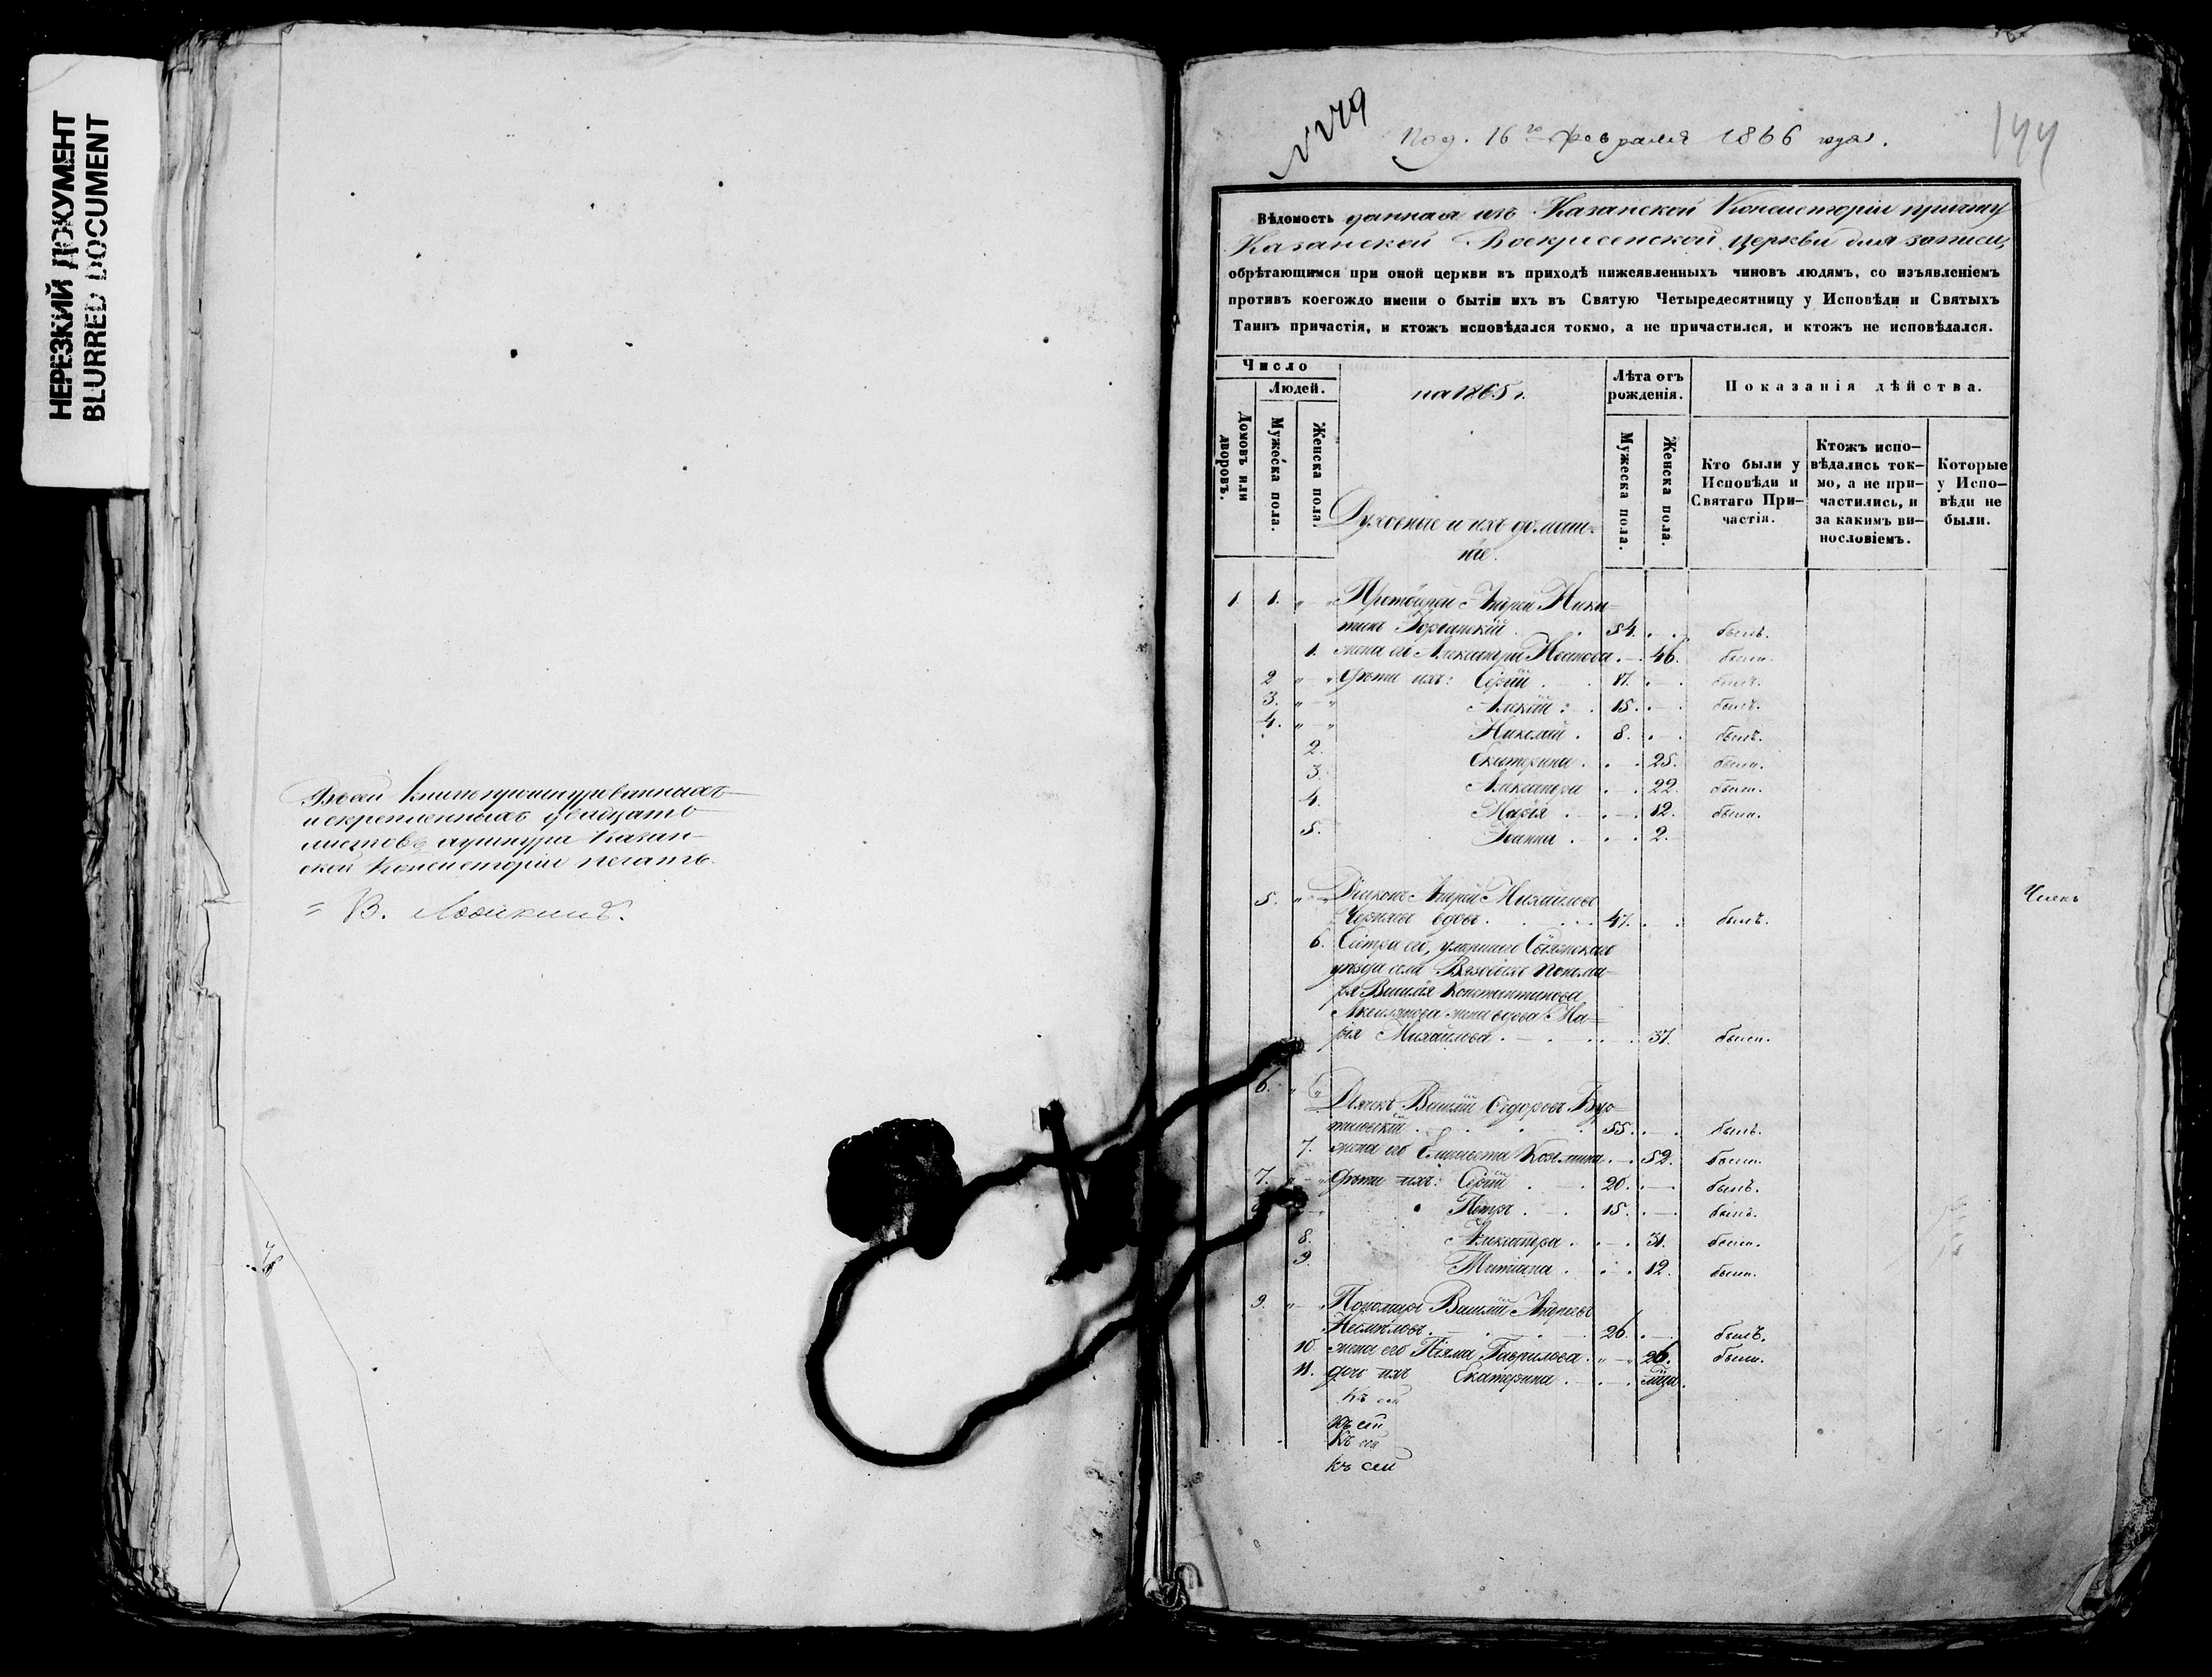 НЕРЕЗКИЙ ДОКУМЕНТ
BLURRED DOCUMENT
Въ сей книге прошнурованныхъ
и скрепленныхъ двадцать
листовъ, а у шнура Казан-
ской Консисторіи печать.
В.
Под. 16го Февраля 1866 года.
144
Вѣдомость данная изъ Казанской Консисторіи причту
Казанской Воскресенской церкви для записи,
обрѣтающимся при оной церкви въ приходѣ нижеявленныхъ чиновъ людямъ, со изъявленіемъ
противъ коегождо имени о бытіи ихъ въ Святую Четыредесятницу у Исповѣди и Святыхъ
Таинъ причастія, и ктожъ исповѣдался токмо, а не причастился, и ктожъ не исповѣдался.
Число
Людей.
Домовъ или дворовъ.
Мужеска пола.
Женска пола.
на 1865 г.
Духовные и ихъ домаш-
ніе.
Лѣта отъ рожденія.
Мужеска пола.
Женска пола.
Показанія дѣйства.
Кто были у Исповѣди и Святаго Причастія.
Ктожъ исповѣдались токмо, а не причастились, и за какимъ винословіемъ.
Которые у Исповѣди не были.
1. 1. Протоіерей Андрей Ники-
тинъ 54. былъ.
1. жена его Александра Иванова 46. была.
2 дѣти ихъ: Сергій 17. былъ.
3. Алексій 15. былъ.
4. Николай 8. былъ.
2. Екатерина 25. была.
3. Александра 22. была.
4. Марія 12. была.
5. Іоанна 2.
5. Діаконъ Андрей Михайловъ
вдовъ 47. былъ.
6. Сестра его, умершаго Свіяжскаго
уѣзда села Вязовыхъ понома-
ря Василія Константинова
жена вдова Ма-
рія Михайлова 37. была.
6. Дьячекъ Василій Ѳедоровъ
55. былъ.
7. жена его Елисавета Козьмина 52. была.
7. дѣти ихъ: Сергій 20. былъ.
Петръ 15. былъ.
8. Александра 31. была.
9. Татіана 12. была.
9. Пономарь Василій Андреевъ
26. былъ.
10. жена его Гаврилова 26. была.
11. дочь ихъ Екатерина
къ сей
къ сей
къ сей
къ сей